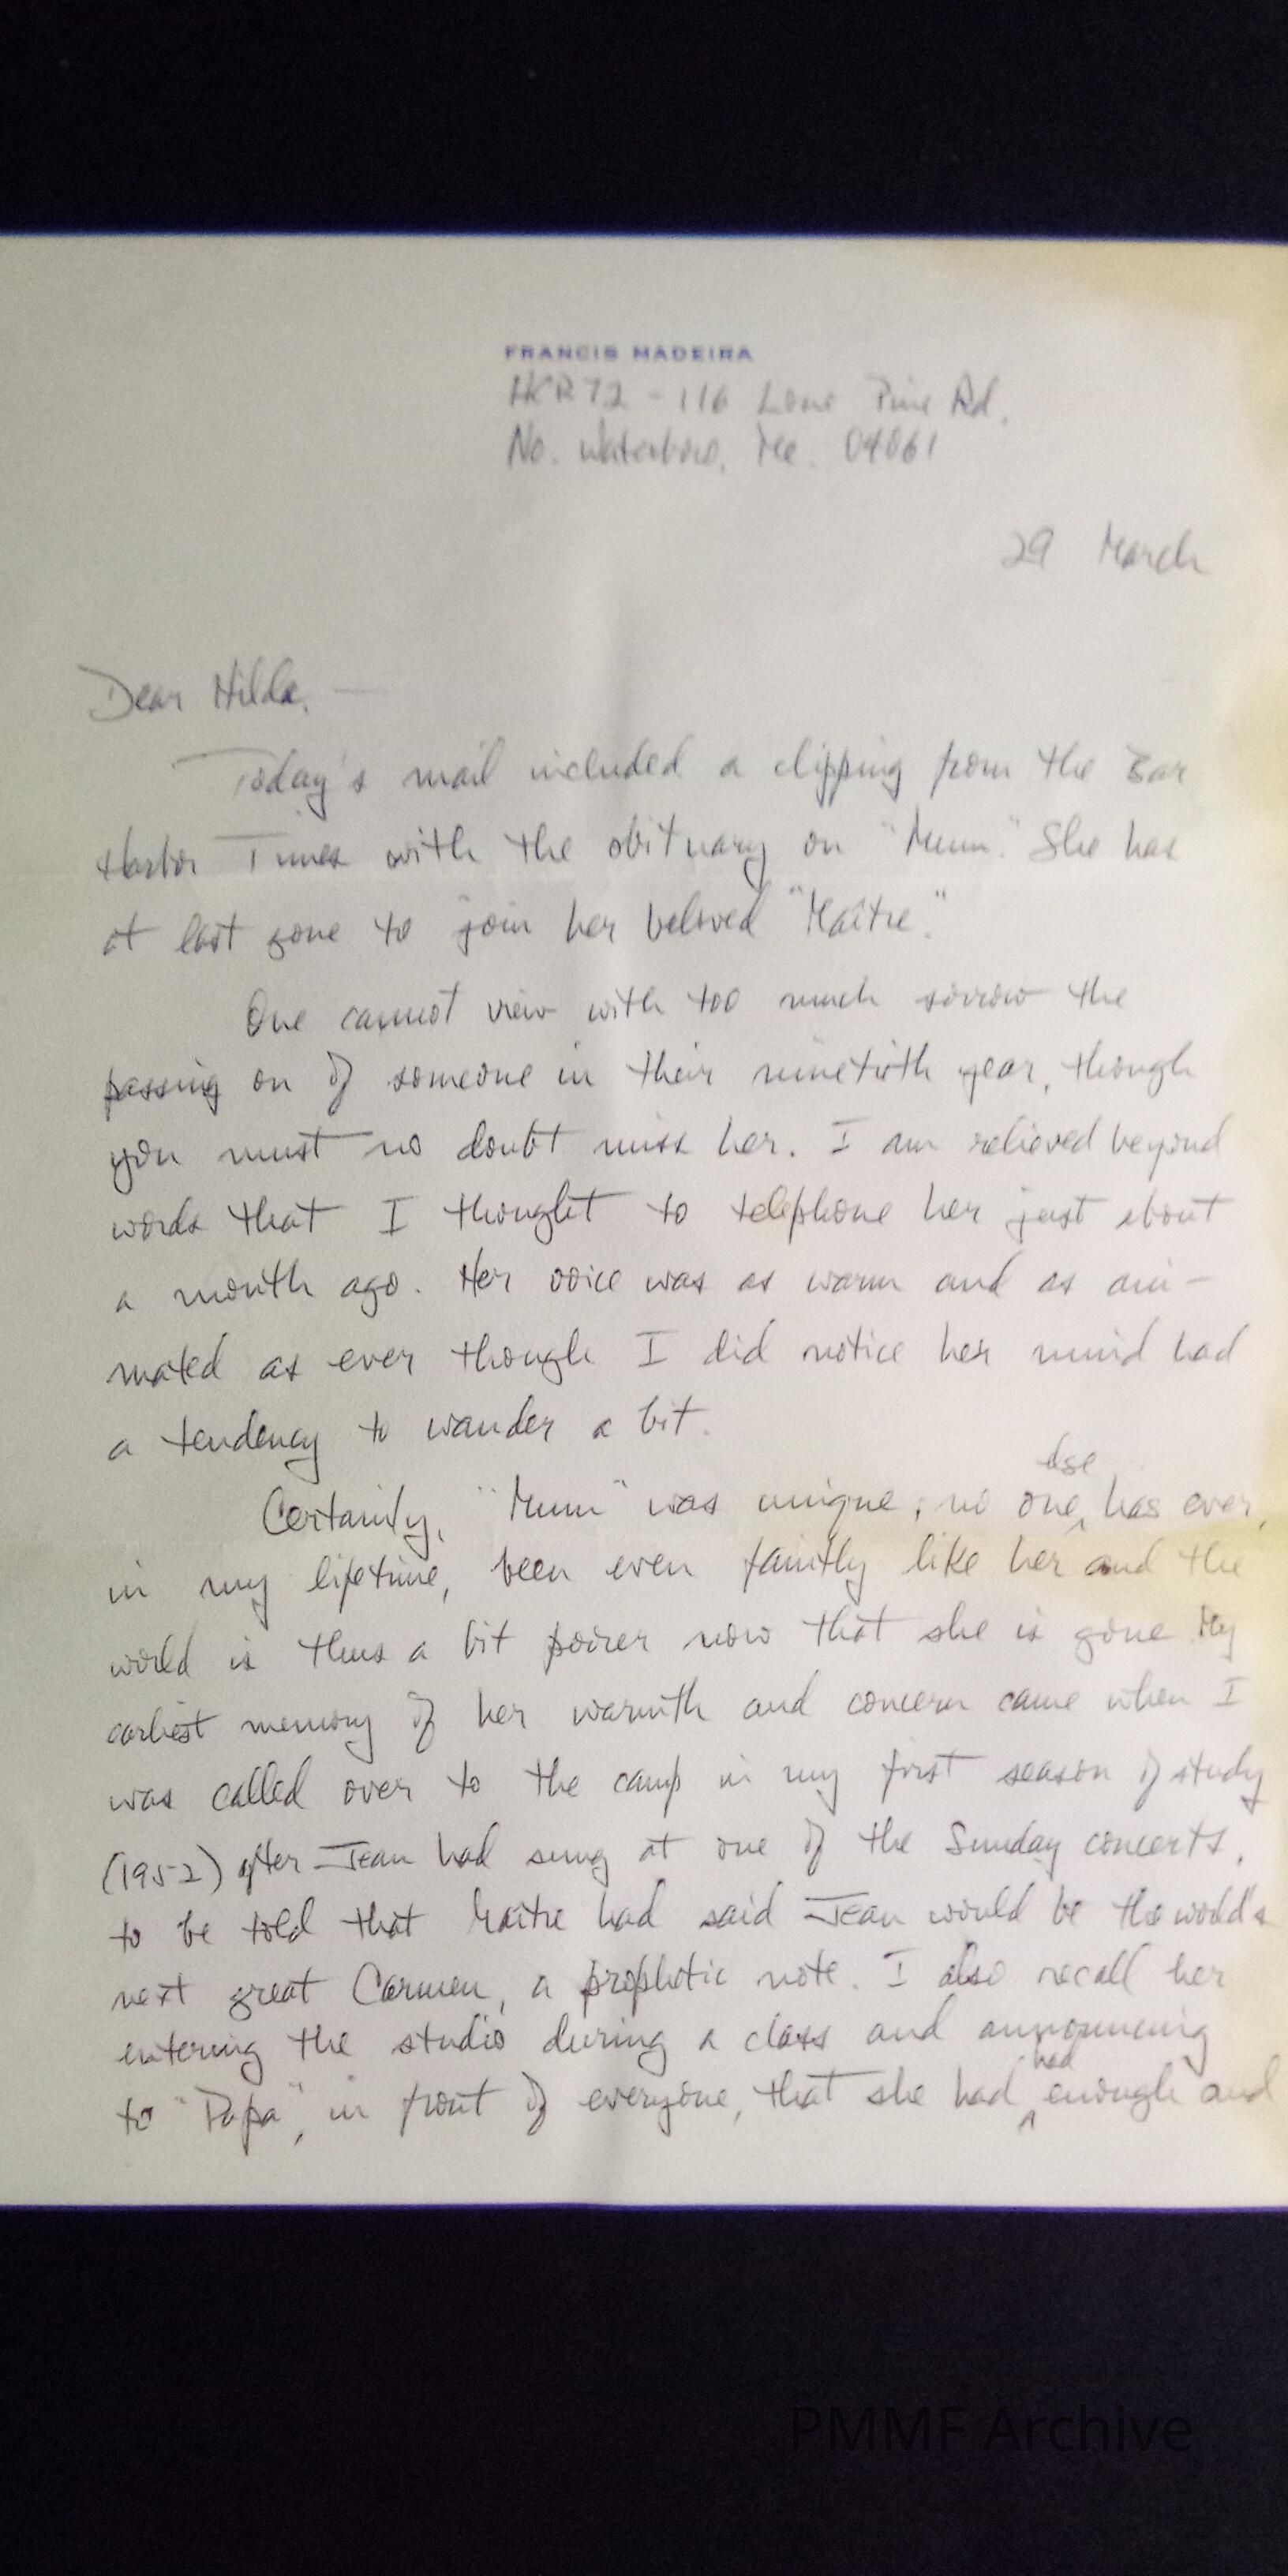 FRANCIS MADEIRA
HCR 72 - 116 Lone Pine Rd.
No. Waterboro, Me. 04061
29 March
Dear Hilda, —
Today's mail included a clipping from the Bar
Harbor Times with the obituary on "Mum." She has
at last gone to join her beloved "Maître."
One cannot view with too much sorrow the
passing on of someone in their ninetieth year, though
you must no doubt miss her. I am relieved beyond
words that I thought to telephone her just about
a month ago. Her voice was as warm and as ani-
mated as ever though I did notice her mind had
a tendency to wander a bit.
Certainly, "Mum" was unique; no one else has ever,
in my lifetime, been even faintly like her and the
world is thus a bit poorer now that she is gone. My
earliest memory of her warmth and concern came when I
was called over to the camp in my first season of study
(1952) after Jean had sung at one of the Sunday concerts,
to be told that Maître had said Jean would be the world's
next great Carmen, a prophetic note. I also recall her
entering the studio during a class and announcing
to "Papa", in front of everyone, that she had had enough and
PMMF Archive